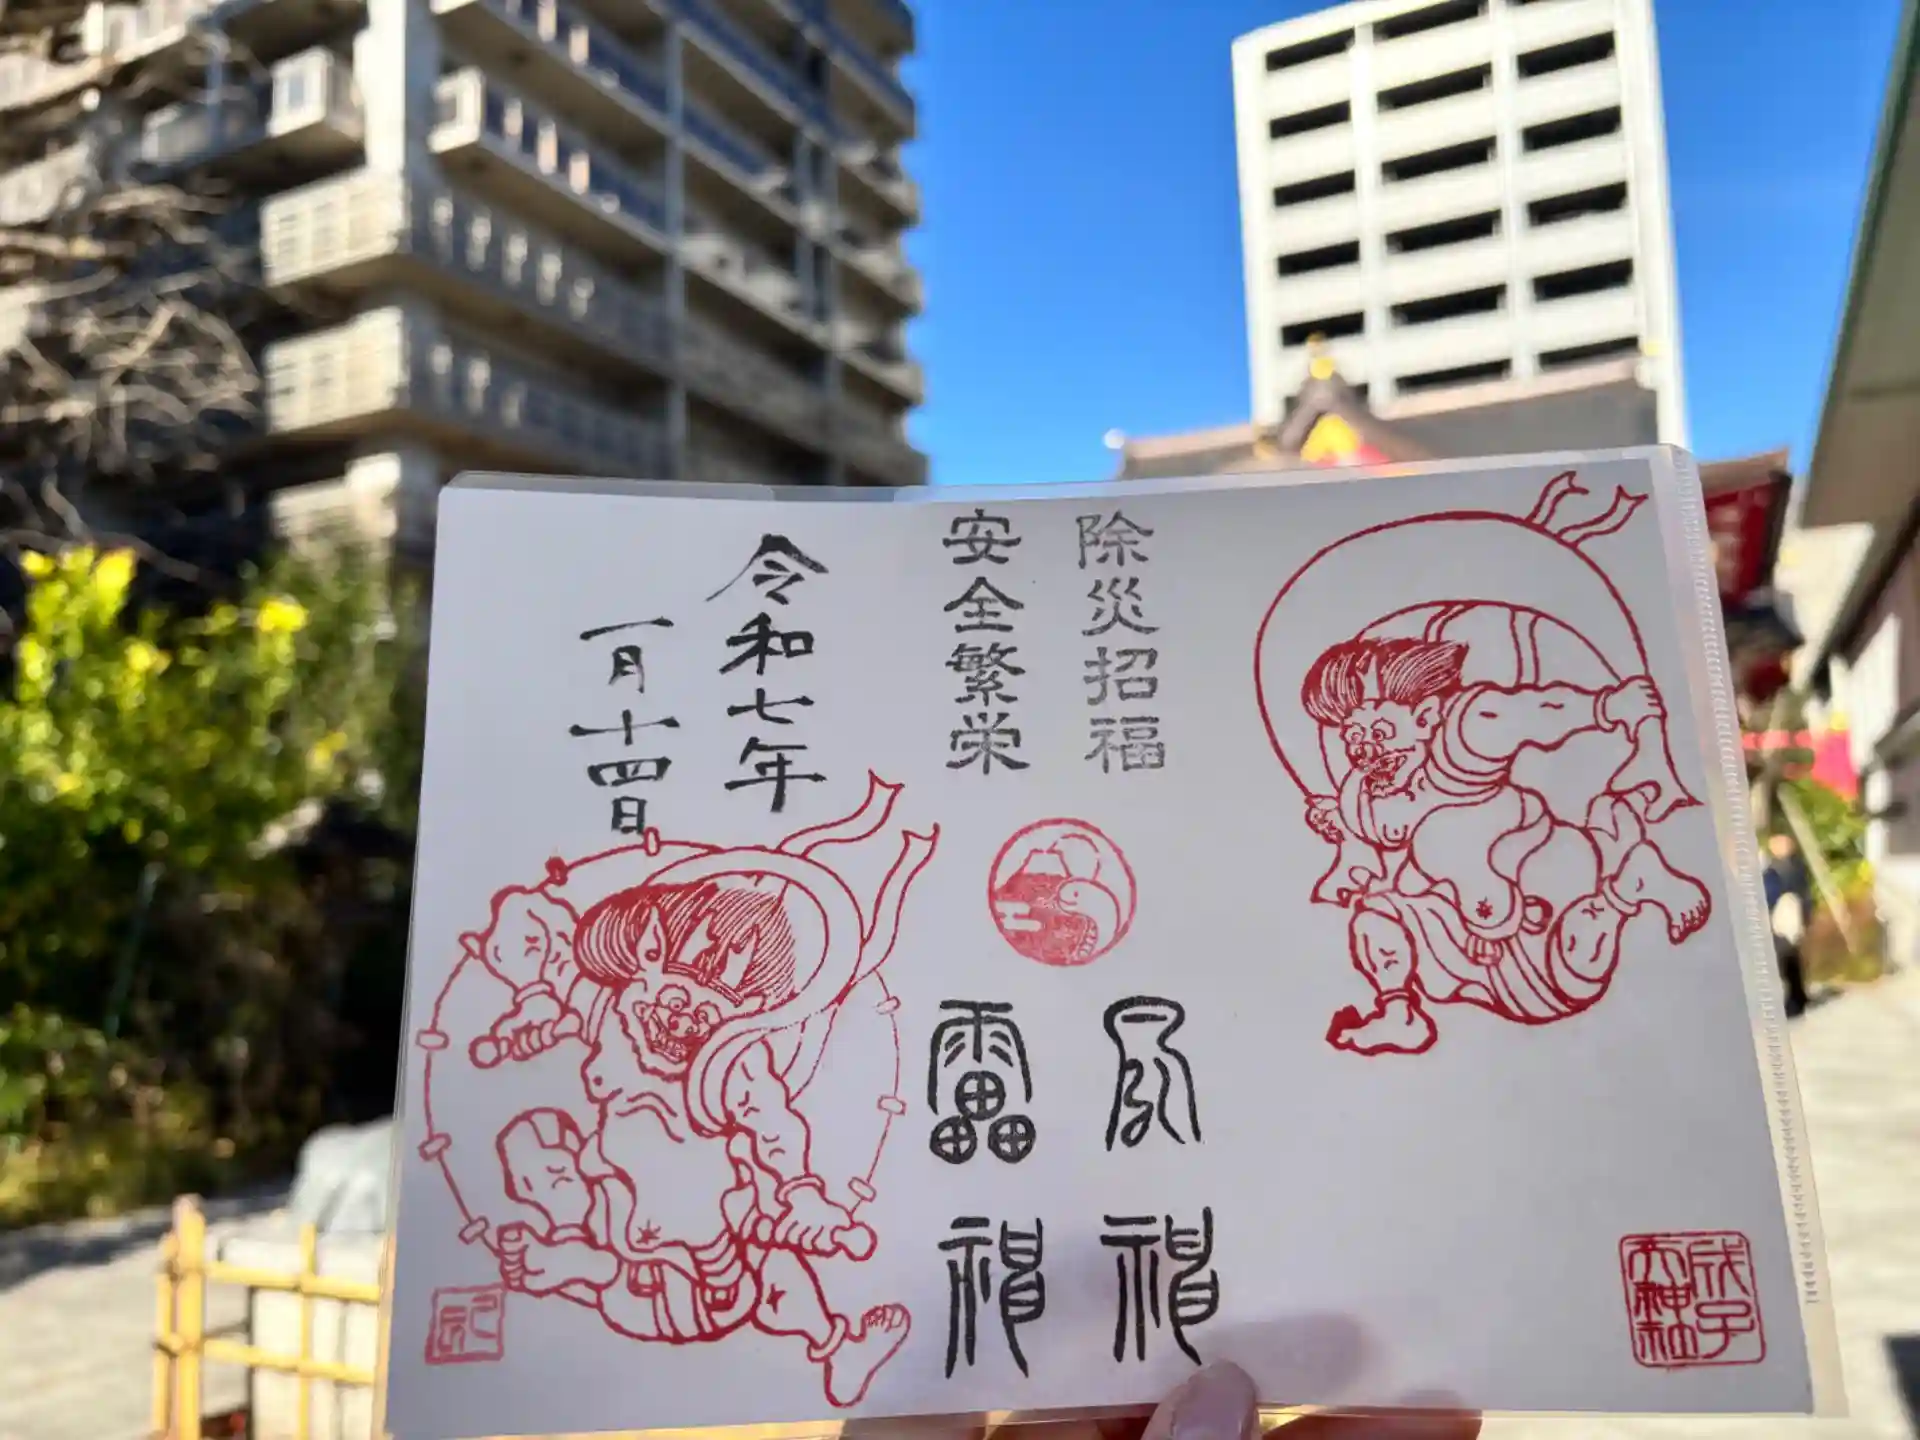 除災招福
安全繁栄
風神
雷神
令和七年
一月十四日
成子天神社